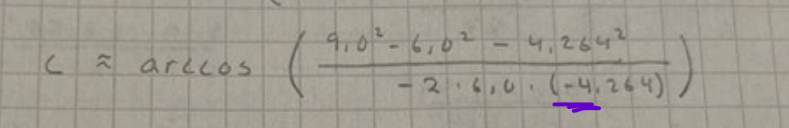 c ≈ arccos ( (9,0² - 6,0² - 4,264²) / (-2 · 6,0 · (-4,264)) )